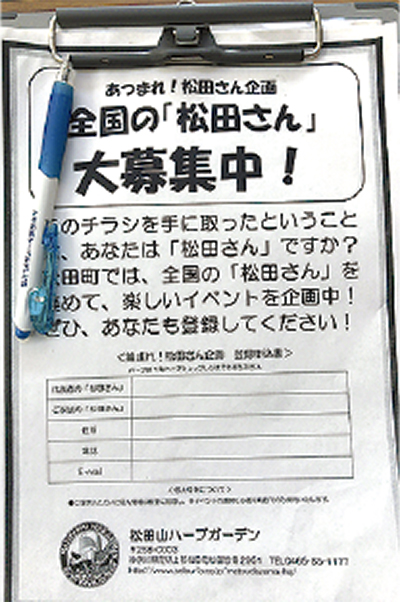 あつまれ！松田さん企画
全国の「松田さん」
大募集中！
のチラシを手に取ったということ
、あなたは「松田さん」ですか？
田町では、全国の「松田さん」を
めて、楽しいイベントを企画中！
ひ、あなたも登録してください！
＜集まれ！松田さん企画　登録申込書＞
代表者の「松田さん」
ご家族の「松田さん」
住所
電話
E-mail
松田山ハーブガーデン
〒258-0003